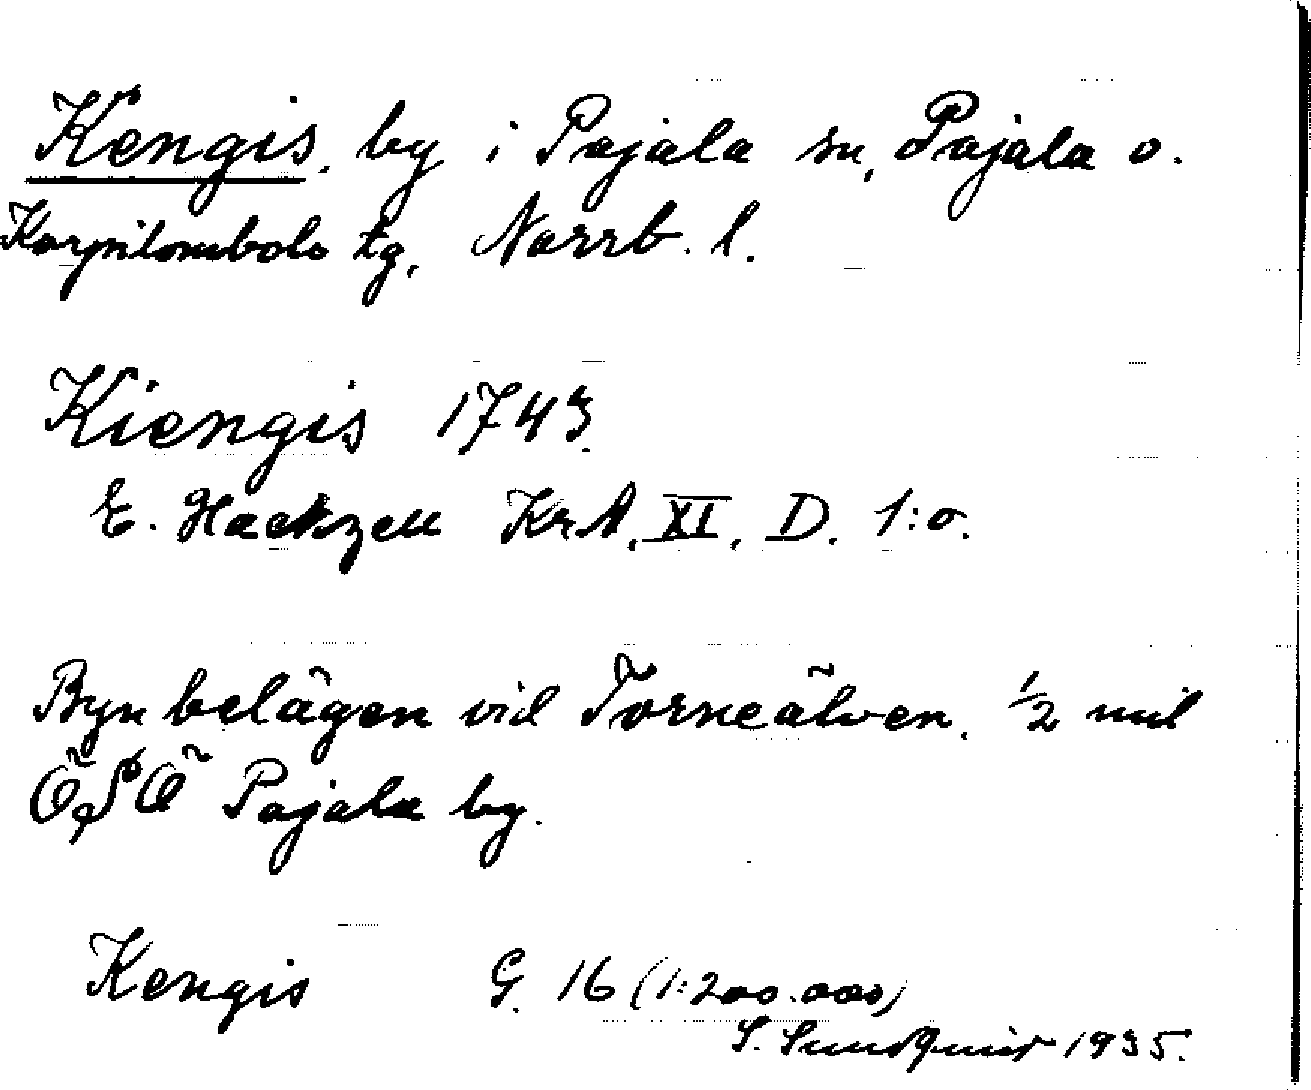 Kengis, by i Pajala sn, Pajala o.
Korpilombolo tg, Norrb. l.
Kiengis 1743.
E. Hackzell KrA, XI, D. 1:o.
Byn belägen vid Torneälven, 1/2 mil
ÖSÖ Pajala by.
Kengis G. 16 (1:200.000)
S. Sundquist 1935.